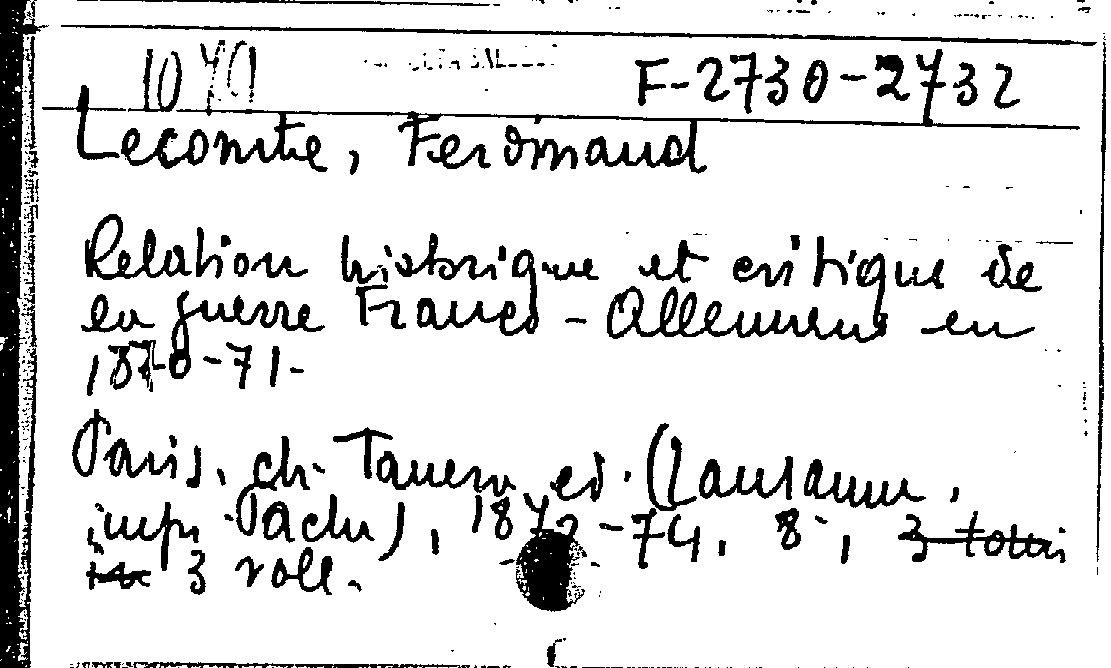 1070 F-2730-2732
Lecomte, Ferdinand
Relation historique et critique de
la guerre Franco-Allemene en
1870-71-
Paris, ch. Tanera, ed. (Lausanne,
impr. Pache), 1872-74, 8-, 3 tomi
3 voll.